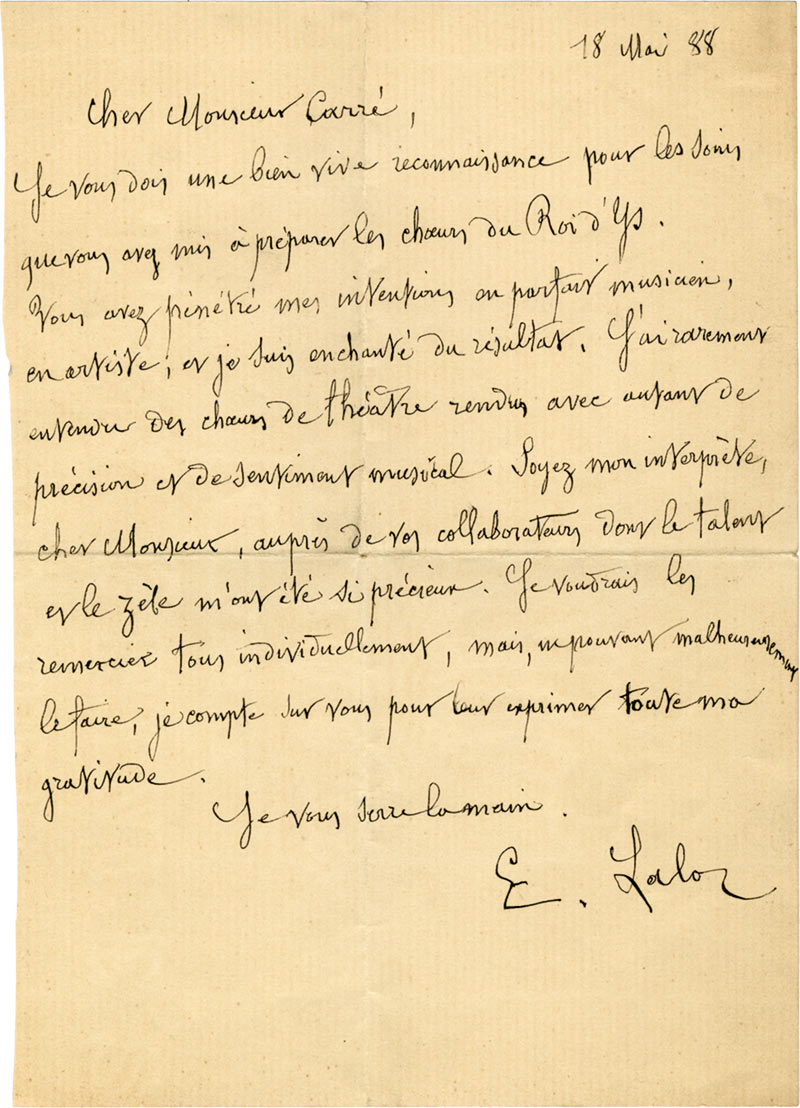 18 Mai 88
Cher Monsieur Carré,
Je vous dois une bien vive reconnaissance pour les soins
que vous avez mis à préparer les chœurs du Roi d'Ys.
Vous avez pénétré mes intentions en parfait musicien,
en artiste, et je suis enchanté du résultat. J'ai rarement
entendu des chœurs de théâtre rendus avec autant de
précision et de sentiment musical. Soyez mon interprète,
cher Monsieur, auprès de vos collaborateurs dont le talent
et le zèle m'ont été si précieux. Je voudrais les
remercier tous individuellement, mais, ne pouvant malheureusement
le faire, je compte sur vous pour leur exprimer toute ma
gratitude.
Je vous serre la main.
E. Lalo